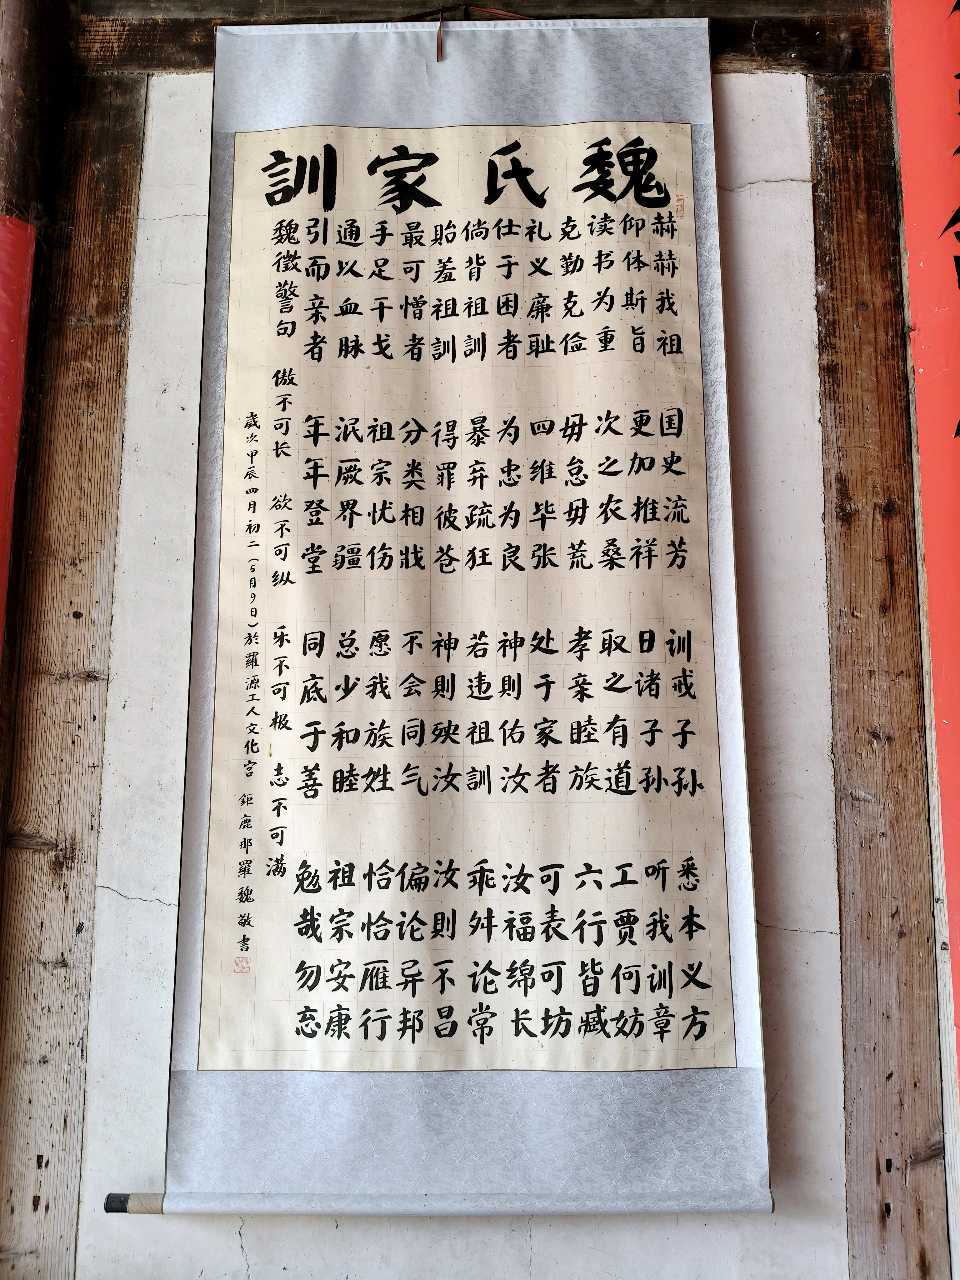 魏氏家訓
赫赫我祖 国史流芳 训戒子孙 悉本义方
仰体斯旨 更加推祥 日诸子孙 听我训章
读书为重 次之农桑 取之有道 工贾何妨
克勤克俭 毋怠毋荒 孝亲睦族 六行皆臧
礼义廉耻 四维毕张 处于家者 可表可坊
仕于困者 为忠为良 神則佑汝 汝福绵长
倘背祖訓 暴弃疏狂 若违祖訓 乖舛论常
貽羞祖訓 得罪彼苍 神則殃汝 汝則不昌
最可憎者 分类相戕 不会同气 偏论异邦
手足干戈 祖宗忧伤 愿我族姓 恰恰雁行
通以血脉 泯厥界疆 总少和睦 祖宗安康
引而亲者 年年登堂 同底于善 勉哉勿忘
魏徵警句 傲不可长 欲不可纵 乐不可极 志不可满
歲次甲辰四月初二(5月9日)於羅源工人文化宫 鉅鹿那羅魏敬書